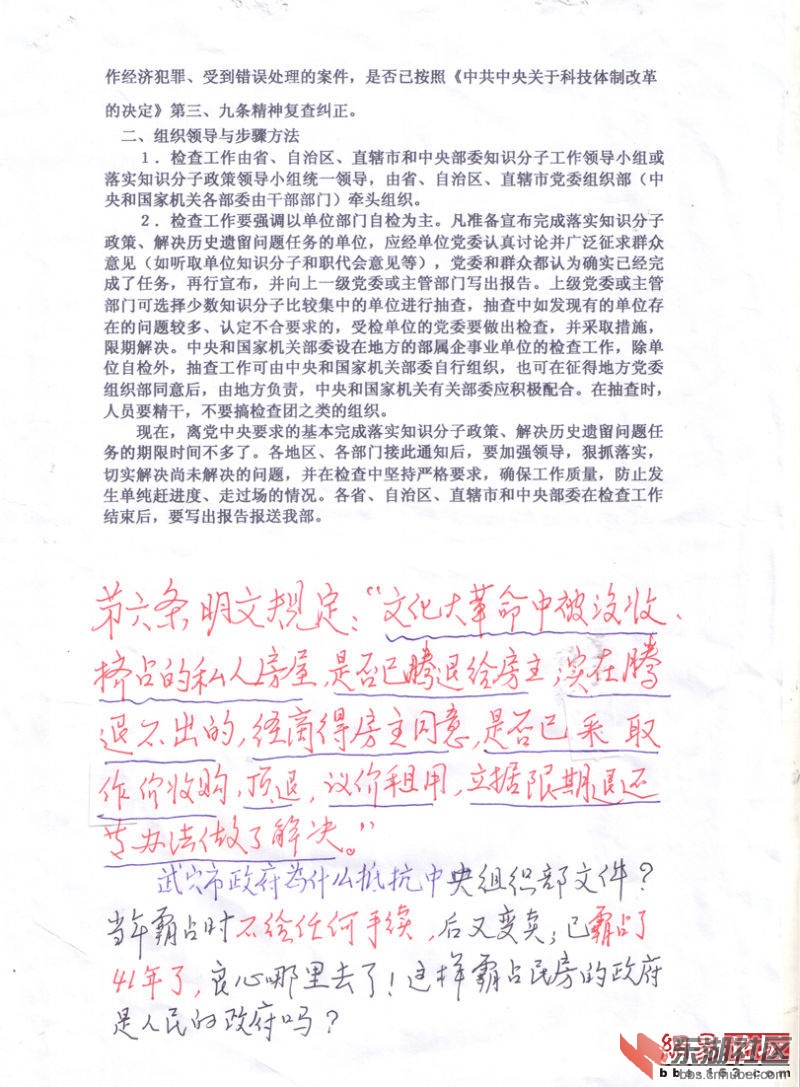 作经济犯罪、受到错误处理的案件，是否已按照《中共中央关于科技体制改革
的决定》第三、九条精神复查纠正。
二、组织领导与步骤方法
１．检查工作由省、自治区、直辖市和中央部委知识分子工作领导小组或
落实知识分子政策领导小组统一领导，由省、自治区、直辖市党委组织部（中
央和国家机关各部委由干部部门）牵头组织。
２．检查工作要强调以单位部门自检为主。凡准备宣布完成落实知识分子
政策、解决历史遗留问题任务的单位，应经单位党委认真讨论并广泛征求群众
意见（如听取单位知识分子和职代会意见等），党委和群众都认为确实已经完
成了任务，再行宣布，并向上一级党委或主管部门写出报告。上级党委或主管
部门可选择少数知识分子比较集中的单位进行抽查，抽查中如发现有的单位存
在的问题较多、认定不合要求的，受检单位的党委要做出检查，并采取措施，
限期解决。中央和国家机关部委设在地方的部属企事业单位的检查工作，除单
位自检外，抽查工作可由中央和国家机关部委自行组织，也可在征得地方党委
组织部同意后，由地方负责，中央和国家机关有关部委应积极配合。在抽查时，
人员要精干，不要搞检查团之类的组织。
现在，离党中央要求的基本完成落实知识分子政策、解决历史遗留问题任
务的期限时间不多了。各地区、各部门接此通知后，要加强领导，狠抓落实，
切实解决尚未解决的问题，并在检查中坚持严格要求，确保工作质量，防止发
生单纯赶进度、走过场的情况。各省、自治区、直辖市和中央部委在检查工作
结束后，要写出报告报送我部。
第六条明文规定：“文化大革命中被没收、
挤占的私人房屋，是否已腾退给房主；实在腾
退不出的，经商得房主同意，是否已采取
作价收购，顶退，议价租用，立据限期退还
等办法做了解决。”
武穴市政府为什么抵抗中央组织部文件？
当年霸占时不给任何手续，后又变卖；已霸占了
41年了，良心哪里去了！这样霸占民房的政府
是人民的政府吗？
东湖社区
bbs.cnhubei.com